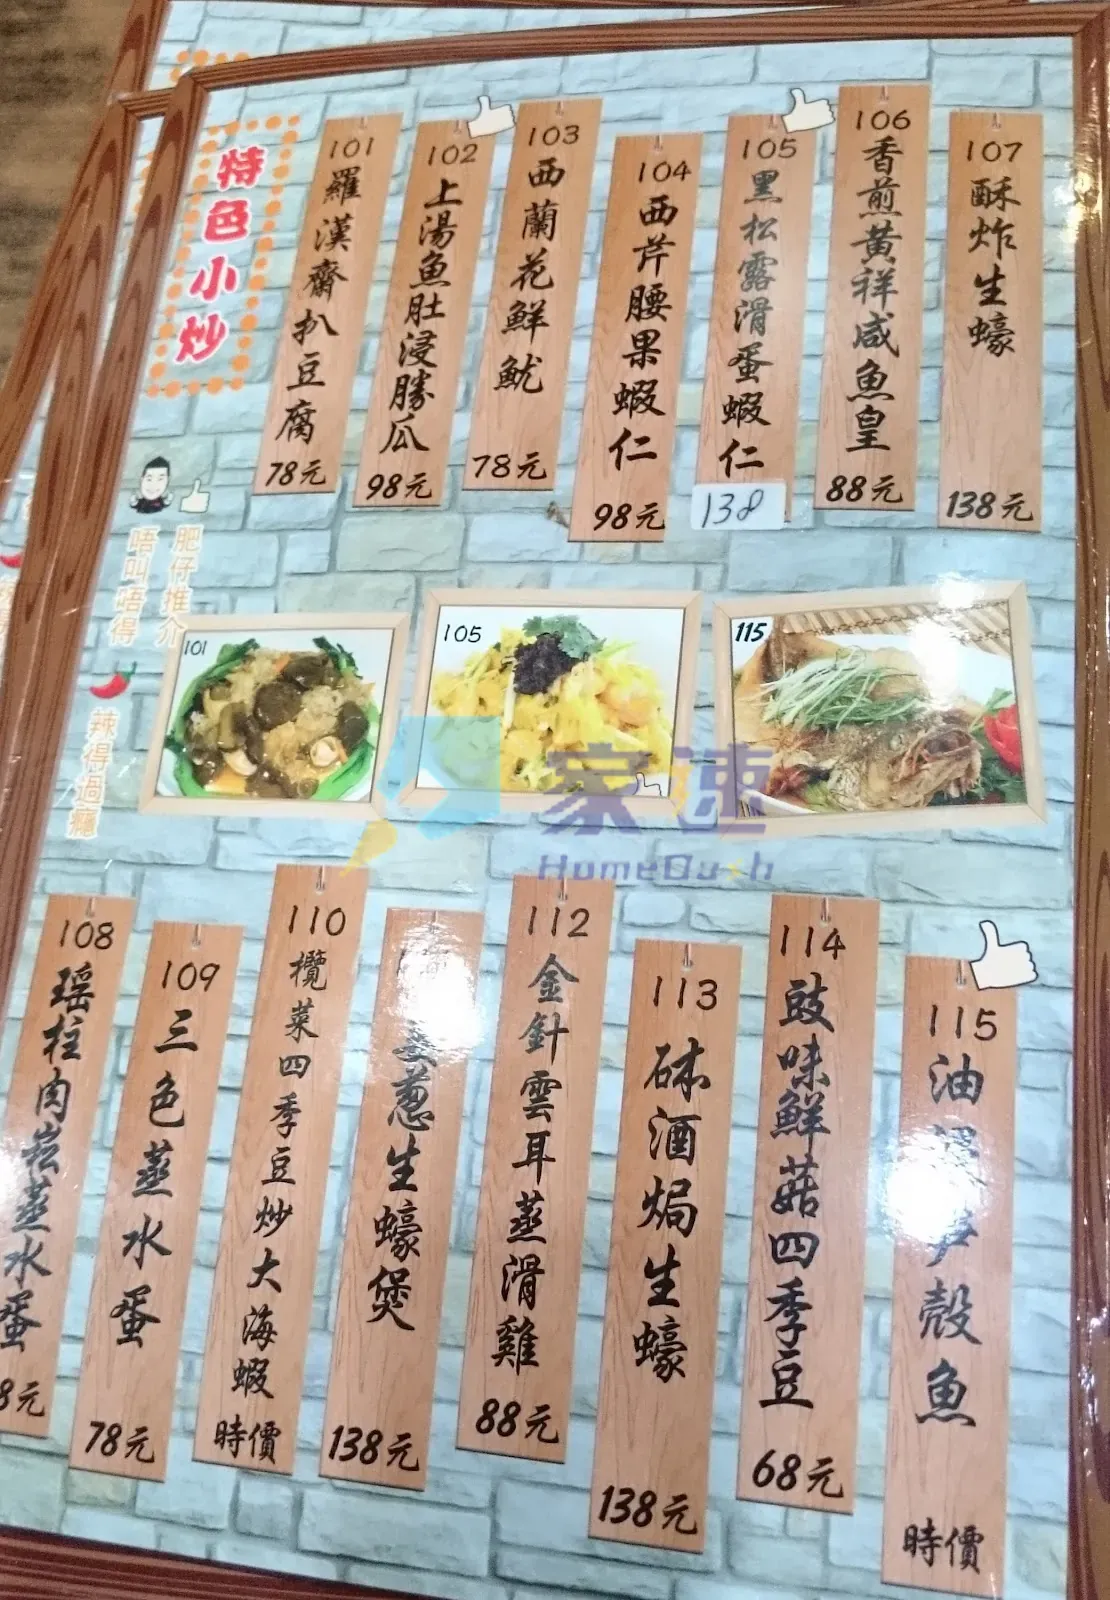 特色小炒
101
羅漢齋扒豆腐
78元
102
上湯魚肚浸勝瓜
98元
103
西蘭花鮮魷
78元
104
西芹腰果蝦仁
98元
105
黑松露滑蛋蝦仁
138
106
香煎黃祥咸魚皇
88元
107
酥炸生蠔
138元
肥仔推介
唔叫唔得
辣得過癮
101
105
115
家速
HomeDash
108
瑶柱肉崧蒸水蛋
8元
109
三色蒸水蛋
78元
110
欖菜四季豆炒大海蝦
時價
蔥生蠔煲
138元
112
金針雲耳蒸滑雞
88元
113
砵酒焗生蠔
138元
114
豉味鮮菇四季豆
68元
115
油浸笋殼魚
時價